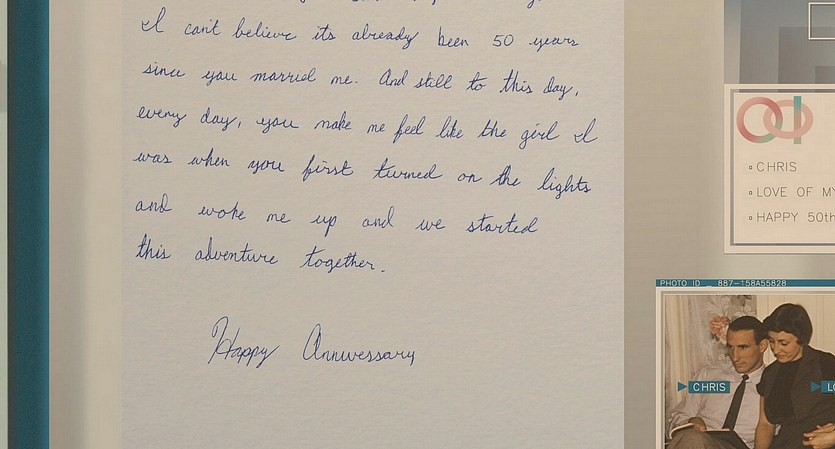 I can't believe its already been 50 years
since you married me. And still to this day,
every day, you make me feel like the girl I
was when you first turned on the lights
and woke me up and we started
this adventure together.
Happy Anniversary
CHRIS
LOVE OF MY
HAPPY 50th
PHOTO ID _ 887-158A55828
CHRIS